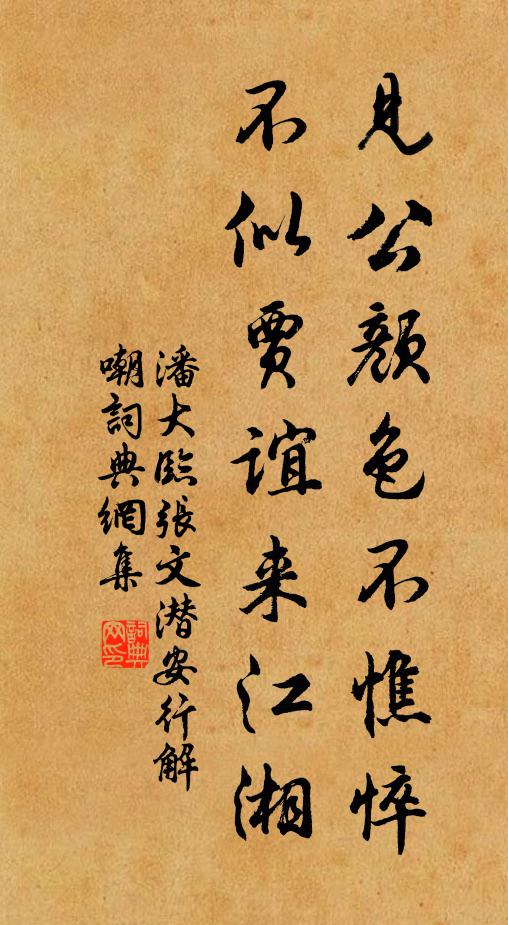 見公顏色不憔悴
不似賈誼来江湘
潘大臨張文潜安行解
嘲詞典網集
詞典
网印